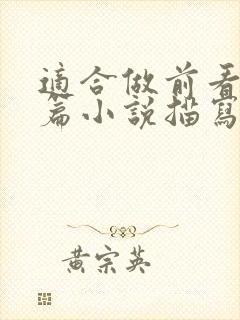 適合做前看
篇小說描寫
黃宗英